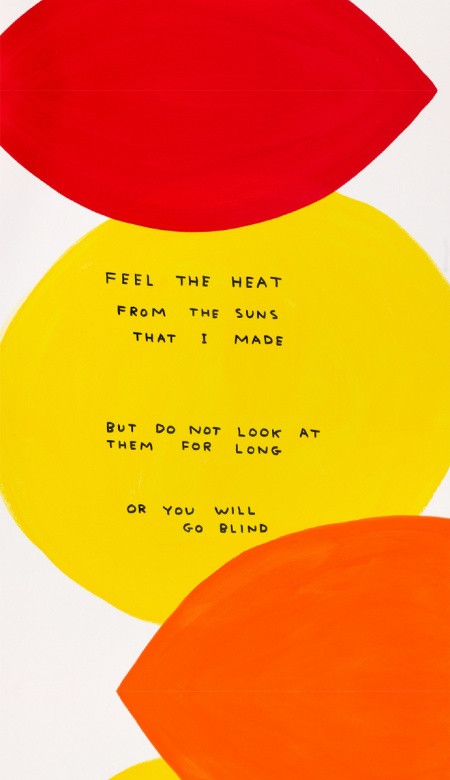 FEEL THE HEAT
FROM THE SUNS
THAT I MADE
BUT DO NOT LOOK AT
THEM FOR LONG
OR YOU WILL
GO BLIND